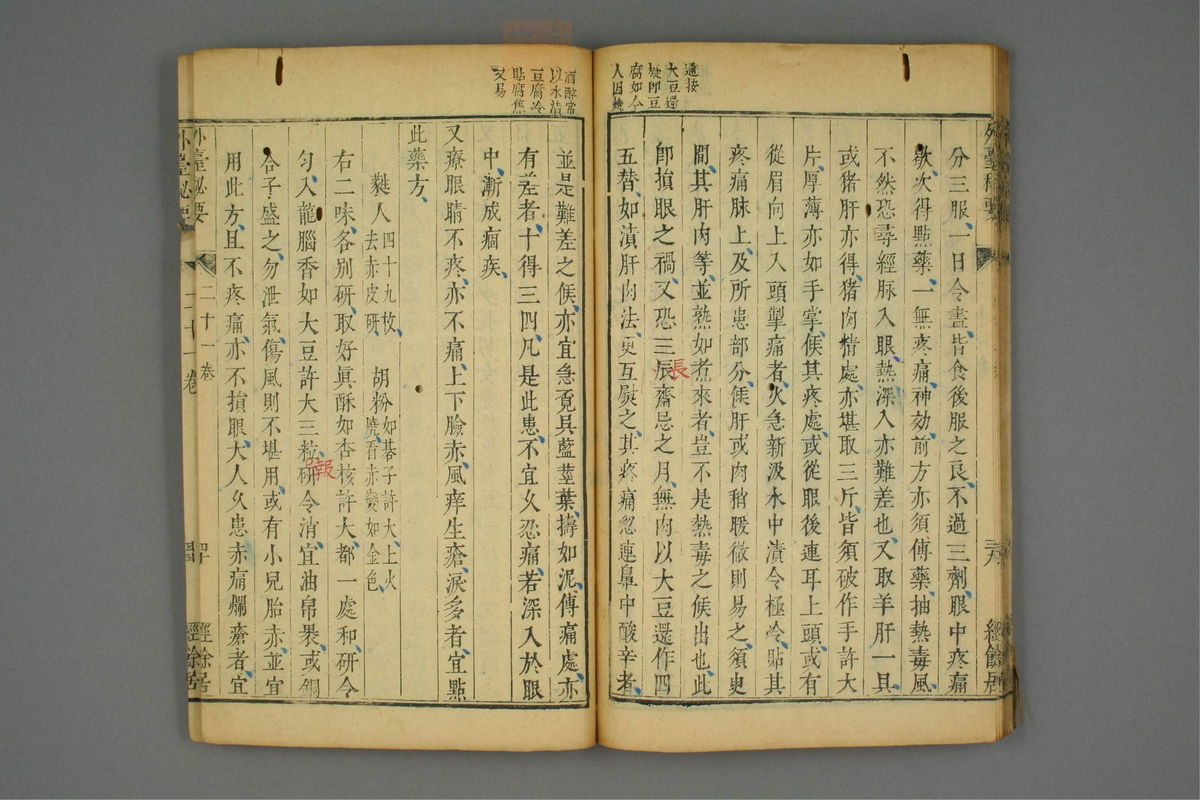 遁按
大豆還
疑即豆
腐如今
人因燒
酒醉常
以水漬
豆腐冷
貼腐焦
又易
分三服一日令盡皆食後服之良不過三劑眼中疼痛
歇次得點藥一無疼痛神効前方亦須傅藥抽熱毒風
不然恐尋經脉入眼熱深入亦難差也又取羊肝一具
或猪肝亦得猪肉精處亦堪取三斤皆須破作手許大
片厚薄亦如手掌候其疼處或從眼後連耳上頭或有
從眉向上入頭掣痛者火急新汲水中漬令極冷貼其
疼痛脉上及所患部分候肝或肉稍暖徹則易之須臾
間其肝肉等並熟如煮來者豈不是熱毒之候出也此
即損眼之禍又恐三辰齋忌之月無肉以大豆還作四
長
五替如漬肝肉法更互熨之其疼痛忽連鼻中酸辛者
並是難差之候亦宜急覓具藍莖葉擣如泥傅痛處亦
有差者十得三四凡是此患不宜久忍痛若深入於眼
中漸成痼疾
又療眼睛不疼亦不痛上下瞼赤風痒生瘡淚多者宜點
此藥方
蕤人四十九枚去赤皮研 胡粉如碁子許大上火燒看赤變如金色
右二味各别研取好眞酥如杏核許大都一處和研令
勻入龍腦香如大豆許大三粒研令消宜油帛褁或銅
報
合子盛之勿泄氣傷風則不堪用或有小兒胎赤並宜
用此方且不疼痛亦不損眼大人久患赤痛爛瘡者宜
外臺秘要 二十一卷 四 經餘居